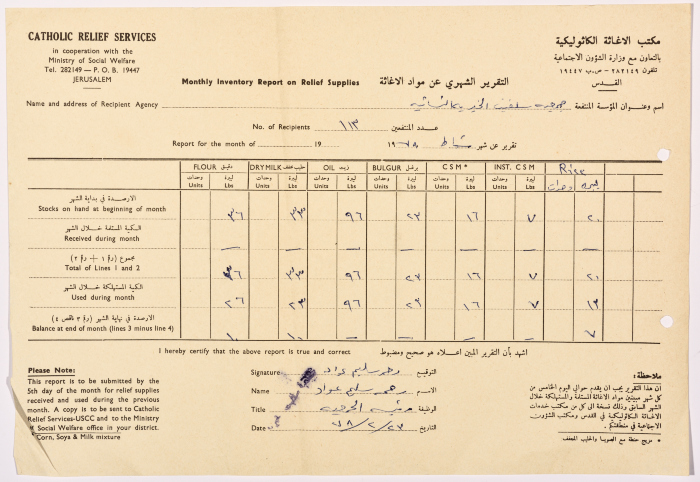 CATHOLIC RELIEF SERVICES
in cooperation with the
Ministry of Social Welfare
Tel. 282149 — P. O. B. 19447
JERUSALEM
مكتب الاغاثة الكاثوليكية
بالتعاون مع وزارة الشؤون الاجتماعية
تلفون ٢٨٢١٤٩ – ص.ب ١٩٤٤٧
القدس
Monthly Inventory Report on Relief Supplies التقرير الشهري عن مواد الاغاثة
Name and address of Recipient Agency جمعية الخيرية النسائية اسم وعنوان المؤسسة المنتفعة
No. of Recipients ١١٣ عدد المنتفعين
Report for the month of 19 ١٩٧٨ شباط تقرير عن شهر
FLOUR دقيق DRY MILK حليب مجفف OIL زيت BULGUR برغل CSM* INST. CSM Rice
وحدات Units ليبرة Lbs وحدات Units ليبرة Lbs وحدات Units ليبرة Lbs وحدات Units ليبرة Lbs وحدات Units ليبرة Lbs وحدات Units ليبرة Lbs وحدات ليبره
الارصدة في بداية الشهر
Stocks on hand at beginning of month ٣٦ ٣٣ ٩٦ ٢٣ ١٦ ٧ ٢٠
الكمية المستلمة خلال الشهر
Received during month — — — — — — —
مجموع (رقم ١ + رقم ٢)
Total of Lines 1 and 2 ٣٦ ٣٣ ٩٦ ٢٣ ١٦ ٧ ٢٠
الكمية المستهلكة خلال الشهر
Used during month ٢٦ ٢٣ ٩٦ ٢٣ ١٦ ٧ ١٣
الارصدة في نهاية الشهر (رقم ٣ ناقص ٤)
Balance at end of month (lines 3 minus line 4) ١٠ ١٠ ٧
I hereby certify that the above report is true and correct اشهد بأن التقرير المبين اعلاه هو صحيح ومضبوط
Signature سليم عواد التوقيع
Name سليم عواد الاسم
Title الوظيفة
Date ٧٨/٢/٢٣ التاريخ
Please Note:
This report is to be submitted by the
5th day of the month for relief supplies
received and used during the previous
month. A copy is to be sent to Catholic
Relief Services-USCC and to the Ministry
of Social Welfare office in your district.
* Corn, Soya & Milk mixture
ملاحظة:
ان هذا التقرير يجب ان يقدم حوالي اليوم الخامس من
كل شهر مبينين مواد الاغاثة المستلمة والمستهلكة خلال
الشهر السابق وذلك نسخة الى كل من مكتب خدمات
الاغاثة الكاثوليكية في القدس ومكتب الشؤون
الاجتماعية في منطقتكم.
* مزيج حنطة مع الصويا والحليب المجفف